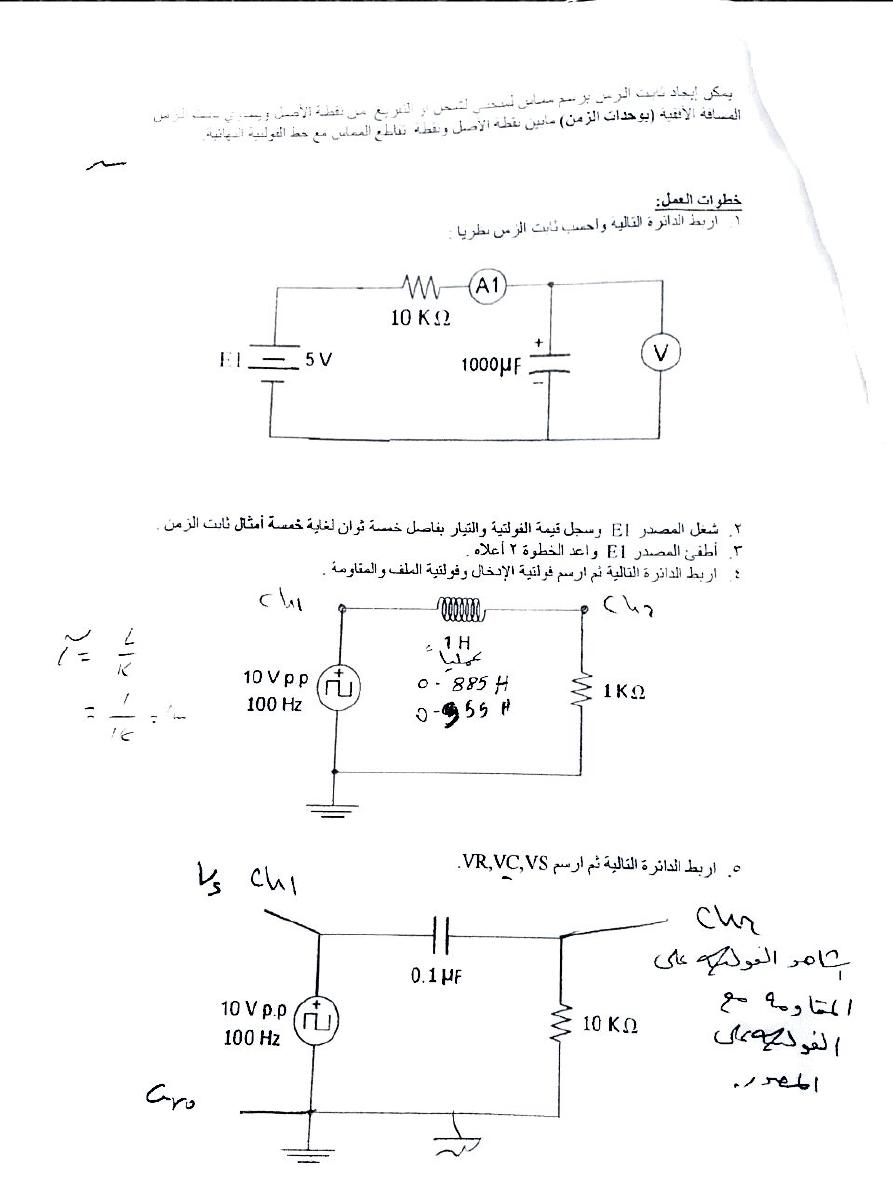 يمكن إيجاد ثابت الزمن برسم مماس لمنحنى الشحن أو التفريغ من نقطة الأصل ويساوي ثابت الزمن
المسافة الأفقية (بوحدات الزمن) مابين نقطة الأصل ونقطة تقاطع المماس مع خط الفولتية النهائية.
خطوات العمل:
١. اربط الدائرة التالية واحسب ثابت الزمن نظريا :
A1
10 KΩ
E1 5 V
1000µF
+
-
V
٢. شغل المصدر E1 وسجل قيمة الفولتية والتيار بفاصل خمسة ثوان لغاية خمسة أمثال ثابت الزمن .
٣. أطفئ المصدر E1 واعد الخطوة ٢ أعلاه .
٤. اربط الدائرة التالية ثم ارسم فولتية الإدخال وفولتية الملف والمقاومة .
ch1
ch2
1 H
عمليا
0.885 H
10 V p p
100 Hz
+
1 KΩ
٥. اربط الدائرة التالية ثم ارسم VR,VC,VS.
Vs ch1
ch2
0.1 µF
10 V p.p
100 Hz
+
10 KΩ
شاهد الفولتية على
المقاومة مع
الفولتية على
المصدر.
Gro